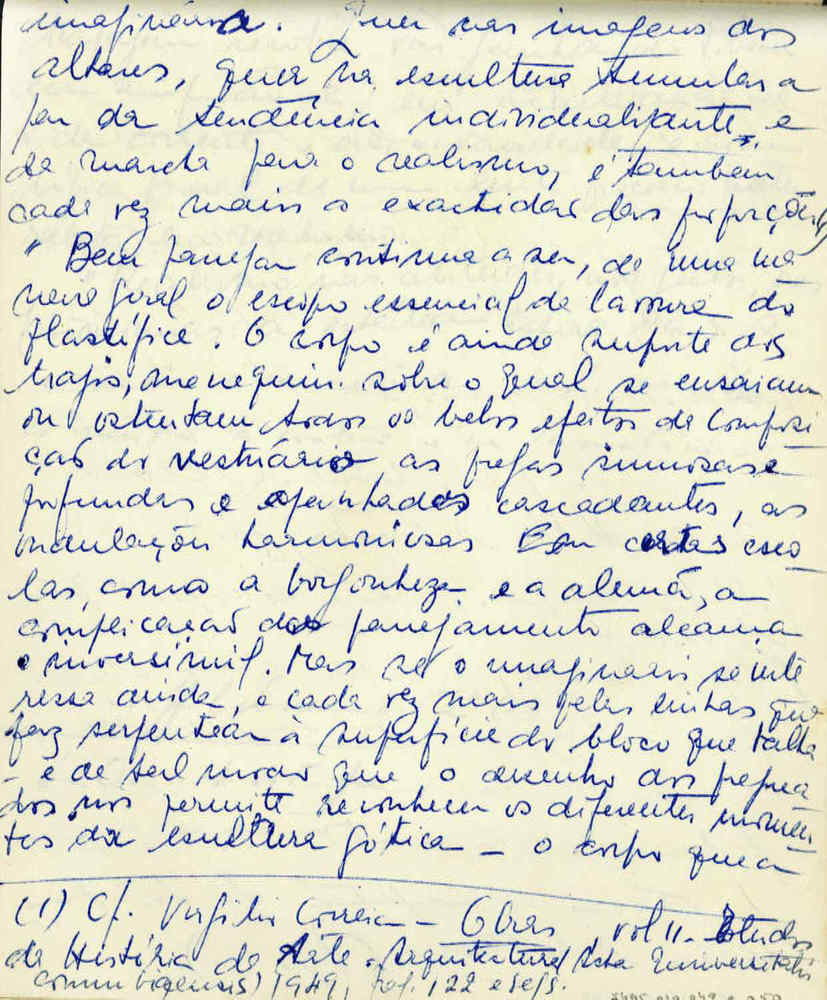 imaginária. Quer nas imagens dos
altares, quer na escultura tumular a
par da tendência individualizante, e
da marcha para o realismo, é também
cada vez mais a exactidão das proporções
" Bem panejar continua a ser, de uma ma
neira geral o escopo essencial da lavoura do
plastífice. O corpo é ainda suporte dos
trajos, manequim sobre o qual se ensaiam
ou ostentam todos os belos efeitos de composi
ção do vestuário as pregas sinuosas e
profundas e apanhados cascadeantes, as
ondulações harmoniosas Em certas esco
las, como a borgonheza e a alemã, a
complicação do panejamento alcança
o inversímil. Mas se o imaginário se inte
ressa ainda, e cada vez mais pelas linhas que
faz serpentear à superfície do bloco que talha
- e de tal modo que o desenho dos
dos nos permite reconhecer os diferentes momen
tos da escultura gótica - o corpo quer
(1) Cf. Vergílio Correia - Obras vol II - Estudos
de História da Arte - Arquitectura (Acta Universitatis
Conimbrigensis) 1949, pag. 122 e segs.